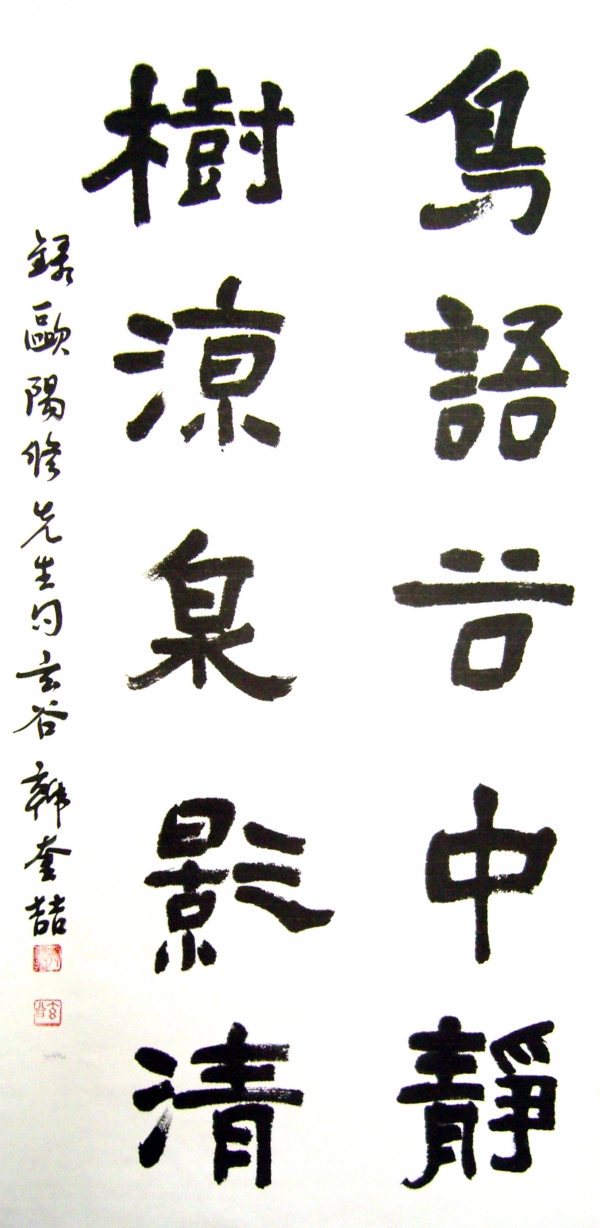 鳥語谷中靜
樹涼泉影清
錄歐陽修先生句 玄谷 韓奎喆